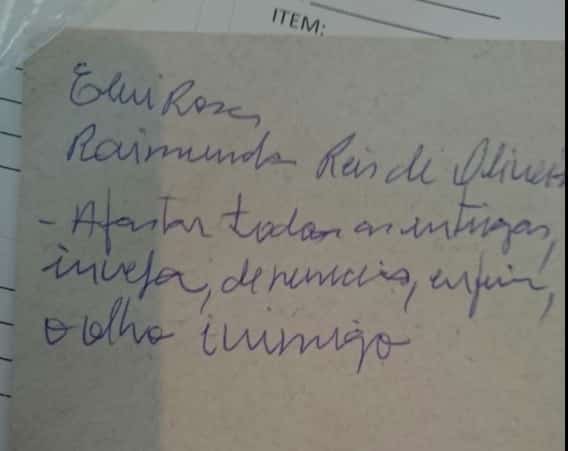 ITEM:
Elui Rosa,
Raimunda Reis de Oliveira
- Afastar todas as intrigas,
inveja, denuncias, enfim,
o olho inimigo